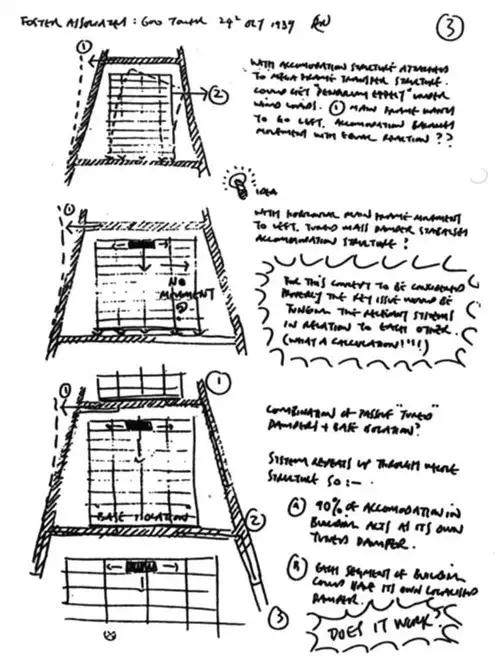 FOSTER ASSOCIATES: 24th OCT 1989
③
①
②
WITH ACCOMODATION STRUCTURE ATTACHED
TO MEGA FRAME TRANSFER STRUCTURE.
COULD GET "PENDULUM EFFECT" UNDER
WIND LOADS. ① MAIN FRAME WANTS
TO GO LEFT, ACCOMODATION BALANCES
MOVEMENT WITH EQUAL REACTION??
IDEA
①
NO
MOVEMENT
?
WITH HORIZONTAL MAIN FRAME MOVEMENT
TO LEFT, TUNED MASS DAMPER STABILISES
ACCOMODATION STRUCTURE?
FOR THIS CONCEPT TO BE CONSIDERED
PROPERLY THE KEY ISSUE WOULD BE
TUNING THE RELEVANT SYSTEMS
IN RELATION TO EACH OTHER.
(WHAT A CALCULATION!"!!)
①
①
BASE ISOLATION
②
③
COMBINATION OF PASSIVE "TUNED"
DAMPERS + BASE ISOLATION?
SYSTEM REPEATS UP THROUGH WHOLE
STRUCTURE SO:-
Ⓐ 90% OF ACCOMODATION IN
BUILDING ACTS AS ITS OWN
TUNED DAMPER.
Ⓑ EACH SEGMENT OF BUILDING
COULD HAVE ITS OWN LOCALISED
DAMPER.
DOES IT WORK?